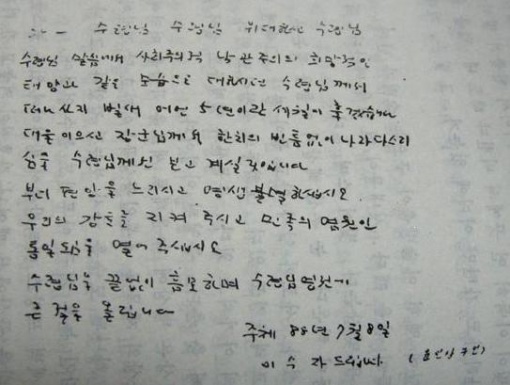 아 - 수령님 수령님 위대한 수령님
수령님 말씀에서 사회주의적 낙관주의의 희망적인
태양과 같은 모습으로 대하시던 수령님께서
떠나신지 벌써 어언 5년이란 세월이 흘렀습니다
대를 이으신 장군님께서 한치의 빈틈없이 나라 다스리
심을 수령님께선 보고 계실것입니다
부디 편안을 누리시고 명생불멸하십시오
우리의 강토를 지켜 주시고 민족의 염원인
통일의 을 열어 주십시오
수령님을 끝없이 흠모하며 수령님 영전에
큰 절을 올립니다
주체 88년 7월 8일
이 수 라 드립니다